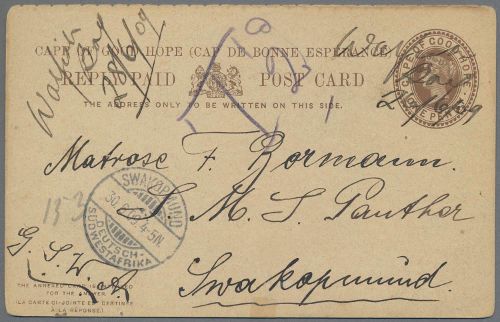 CAPE OF GOOD HOPE (CAP DE BONNE ESPERANCE)
REPLY PAID POST CARD
THE ADDRESS ONLY TO BE WRITTEN ON THIS SIDE.
CAPE OF GOOD HOPE
ONE PENNY
Walfish
Bay
Matrose F. Bormann.
S. M. S. Panther
Swakopmund.
G. S. W. A.
153
SWAKOPMUND
4-5N.
DEUTSCH-
SÜDWESTAFRIKA
THE ANNEXED CARD IS INTENDED
FOR THE ANSWER.
(LA CARTE CI-JOINTE EST DESTINÉE
À LA RÉPONSE)